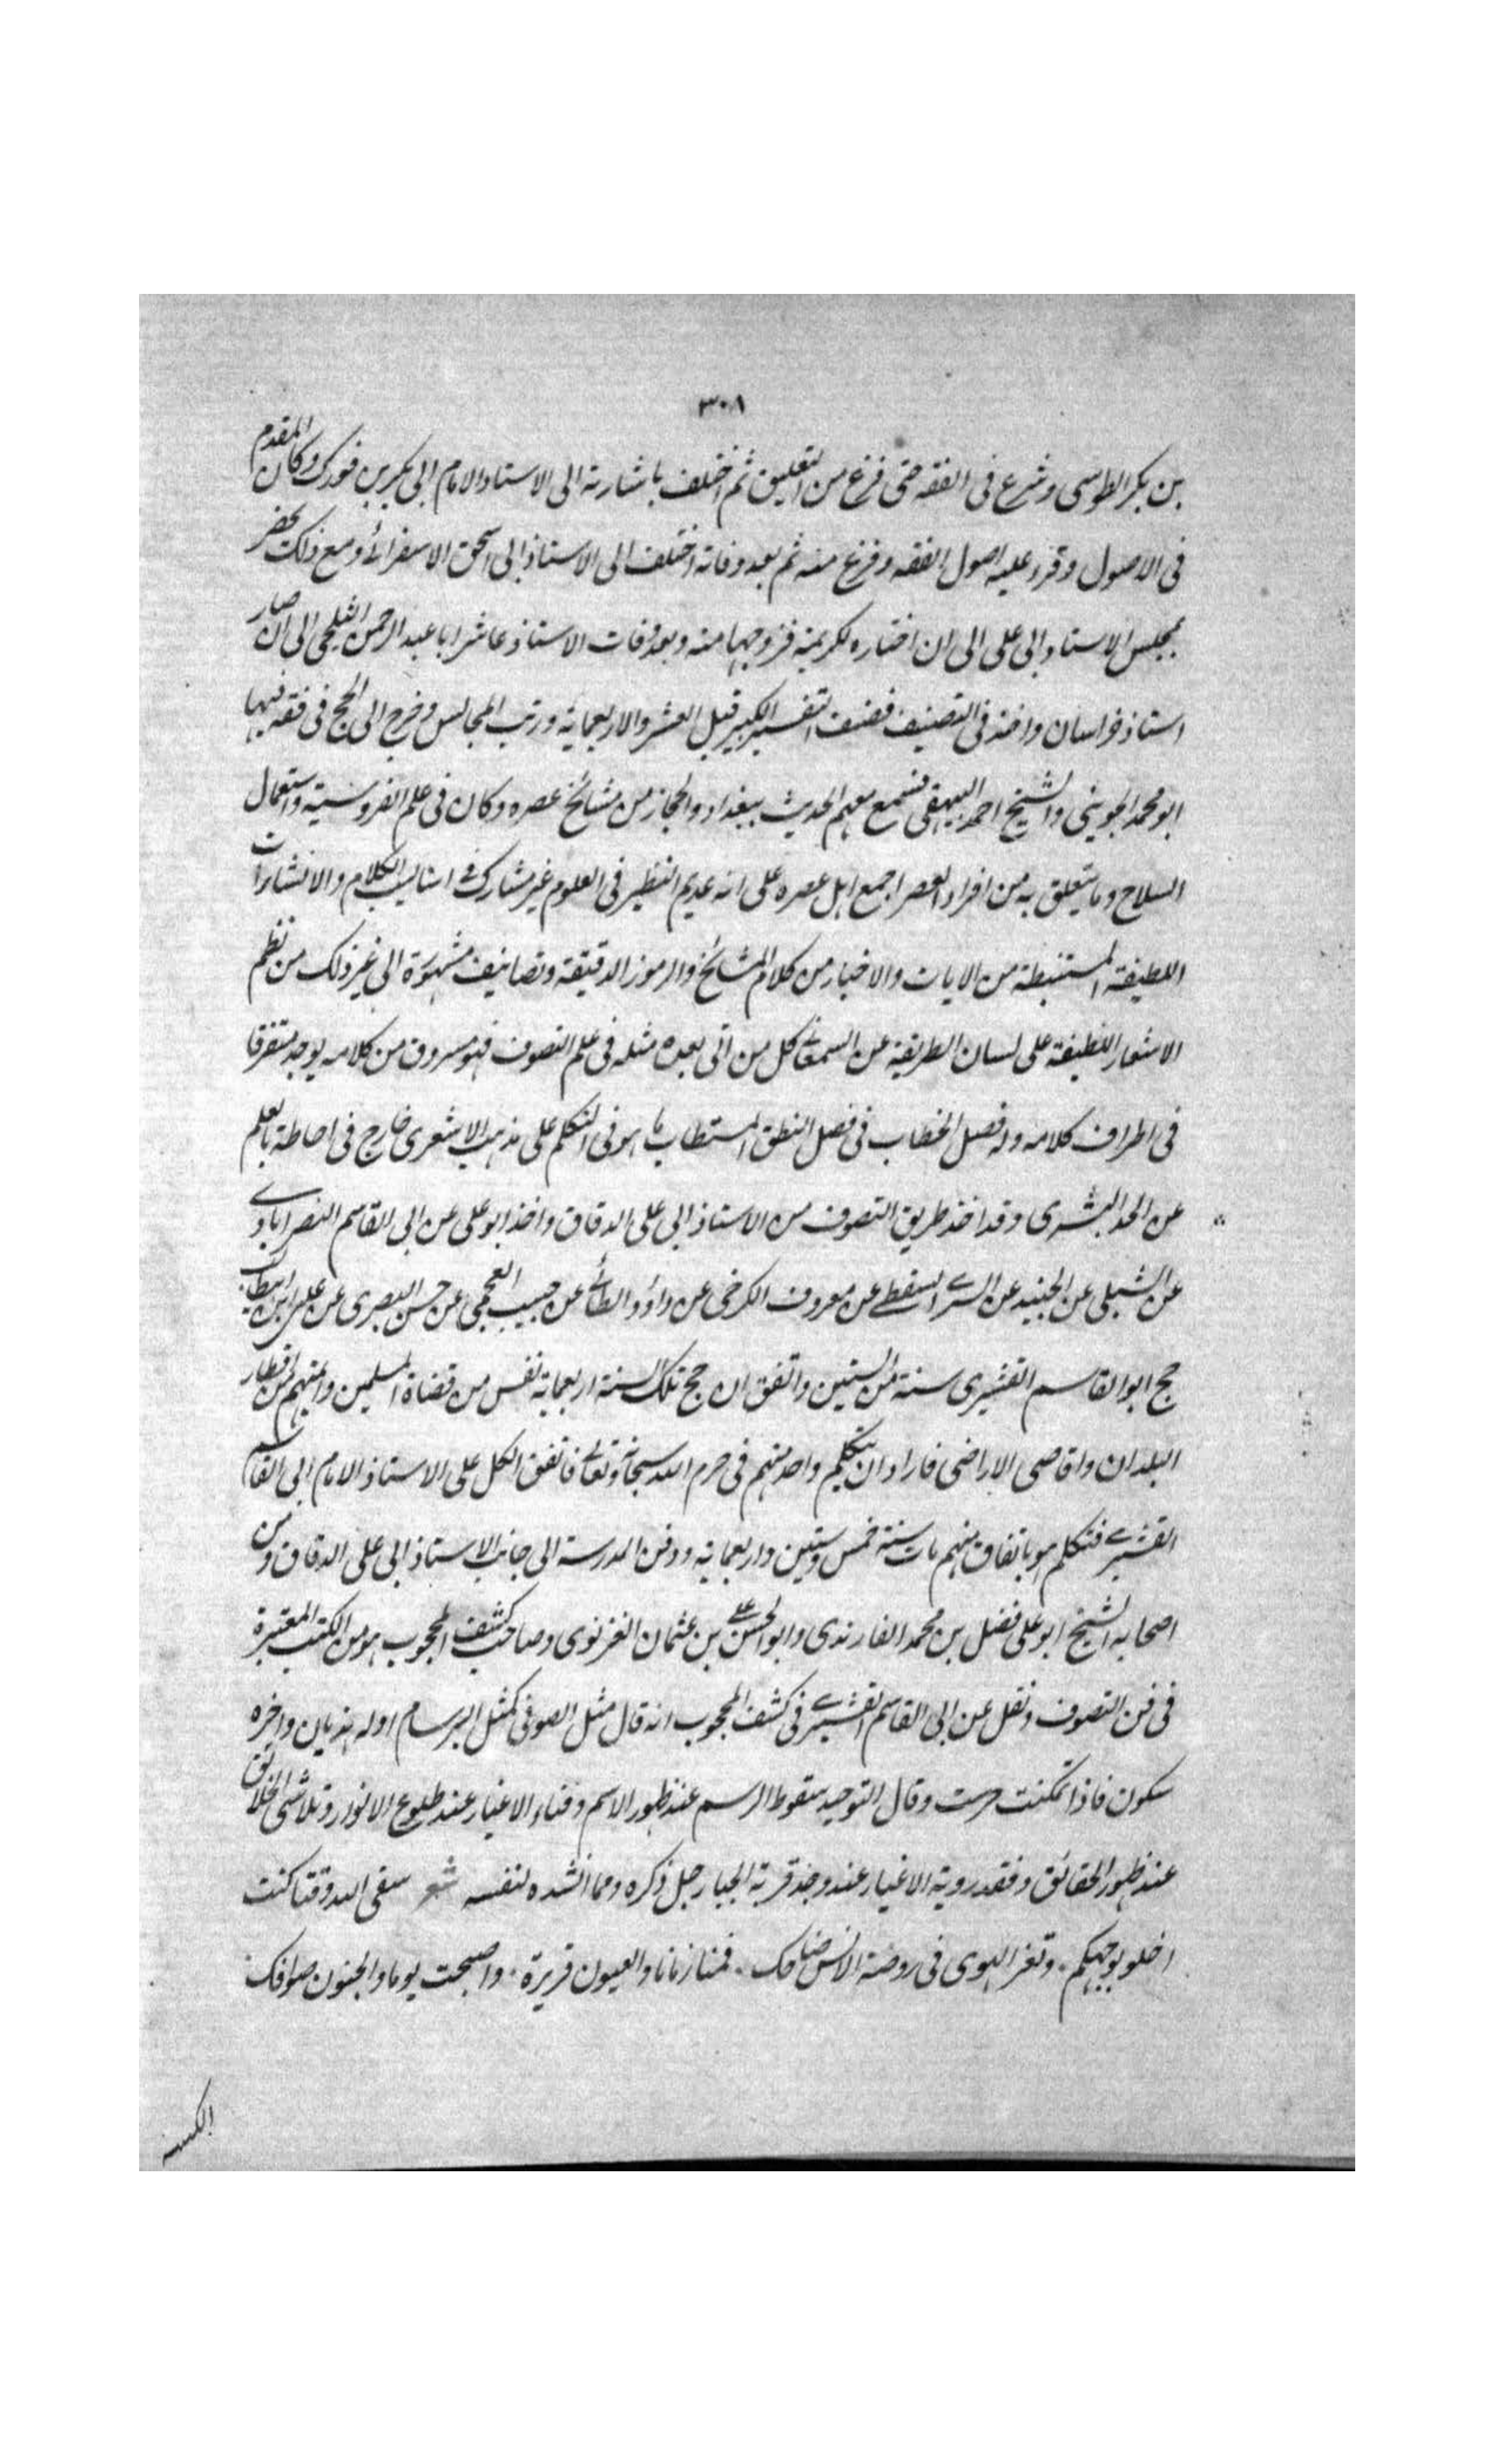 ٣٠٨
بن بكر الطوسى وشرع فى الفقه حتى فرغ من التعليق ثم اختلف باشارته الى الاستاد الامام ابى بكر بن فورك وكان المقدم
فى الاصول وقرء عليه اصول الفقه وفرغ منه ثم بعد وفاته اختلف الى الاستاذ ابى اسحق الاسفرائى ومع ذلك يحضر
مجلس الاستاد ابى على الى ان اختاره لكريمته فزوجها منه وبعد وفات الاستاذ عاشر ابا عبد الرحمن السلمى الى ان صار
استاذ خراسان واخذ فى التصنيف فصنف التفسير الكبير قبل العشر والاربعماية ورتب المجالس وخرج الى الحج فى فقه فيها
ابو محمد الجوينى والشيخ احمد البيهقى فسمع معهم الحديث ببغداد والحجاز من مشائخ عصره وكان فى علم الفروسية واستعمال
السلاح وما يتعلق به من افراد العصر اجمع اهل عصره على انه عديم النظير فى العلوم غير مشارك فى اساليب الكلام والانشارات
اللطيفة المستنبطة من الايات والاخبار من كلام المشائخ والرموز الدقيقة وتصانيف مشهورة الى غير ذلك من نظم
الاشعار اللطيفة على لسان الطريقة عن السمعانى كل من اتى بعده مثله فى علم التصوف فهو مسروق من كلامه يوجد متفرقا
فى اطراف كلامه وله فصل الخطاب فى فضل النطق المستطاب ماهر فى التكلم على مذهب الاشعرى خارج فى احاطة بالعلم
عن الحد البشرى وقد اخذ طريق التصوف من الاستاذ ابى على الدقاق واخذ ابو على عن ابى القاسم النصر ابادى
عن الشبلى عن الجنيد عن السرى السقطى عن معروف الكرخى عن داؤد الطائى عن حبيب العجمى عن حسن البصرى عن على ابن ابيطالب
حج ابو القاسم القشيرى سنة من الستين واتفق ان حج تلك السنة اربعماية نفس من قضاة المسلمين وائمتهم من اقطار
البلدان واقاصى الاراضى فارادان يتكلم واحد منهم فى حرم الله سبحانه وتعالى فاتفق الكل على الاستاذ الامام ابى القاسم
القشيرى فتكلم هو باتفاق منهم مات سنة خمس وستين واربعماية ودفن المدرسة الى جانب الاستاذ ابى على الدقاق ومن
اصحابه الشيخ ابو على فضل بن محمد الفارندى وابو الحسن على بن عثمان الغزنوى وصاحب كشف المحجوب هو من الكتب المعتبرة
فى فن التصوف ونقل عن ابى القاسم القشيرى فى كشف المحجوب انه قال مثل الصوفى كمثل البرسام اوله هذيان واخره
سكون فاذا تمكنت خرست وقال التوحيد سقوط الرسم عند ظهور الاسم وفناء الاغيار عند طلوع الانوار وتلاشى الخلائق
عند ظهور الحقائق وفقد روية الاغيار عند وجد قربة الجبار جل ذكره ومما انشده لنفسه شعر سقى الله وقتا كنت
اخلو بوجهكم ٠ وثغر الهوى فى روضة الانس ضاحك ٠ قمنا زمانا والعيون قريرة ٠ واصبحت يوما والجفون صوافك